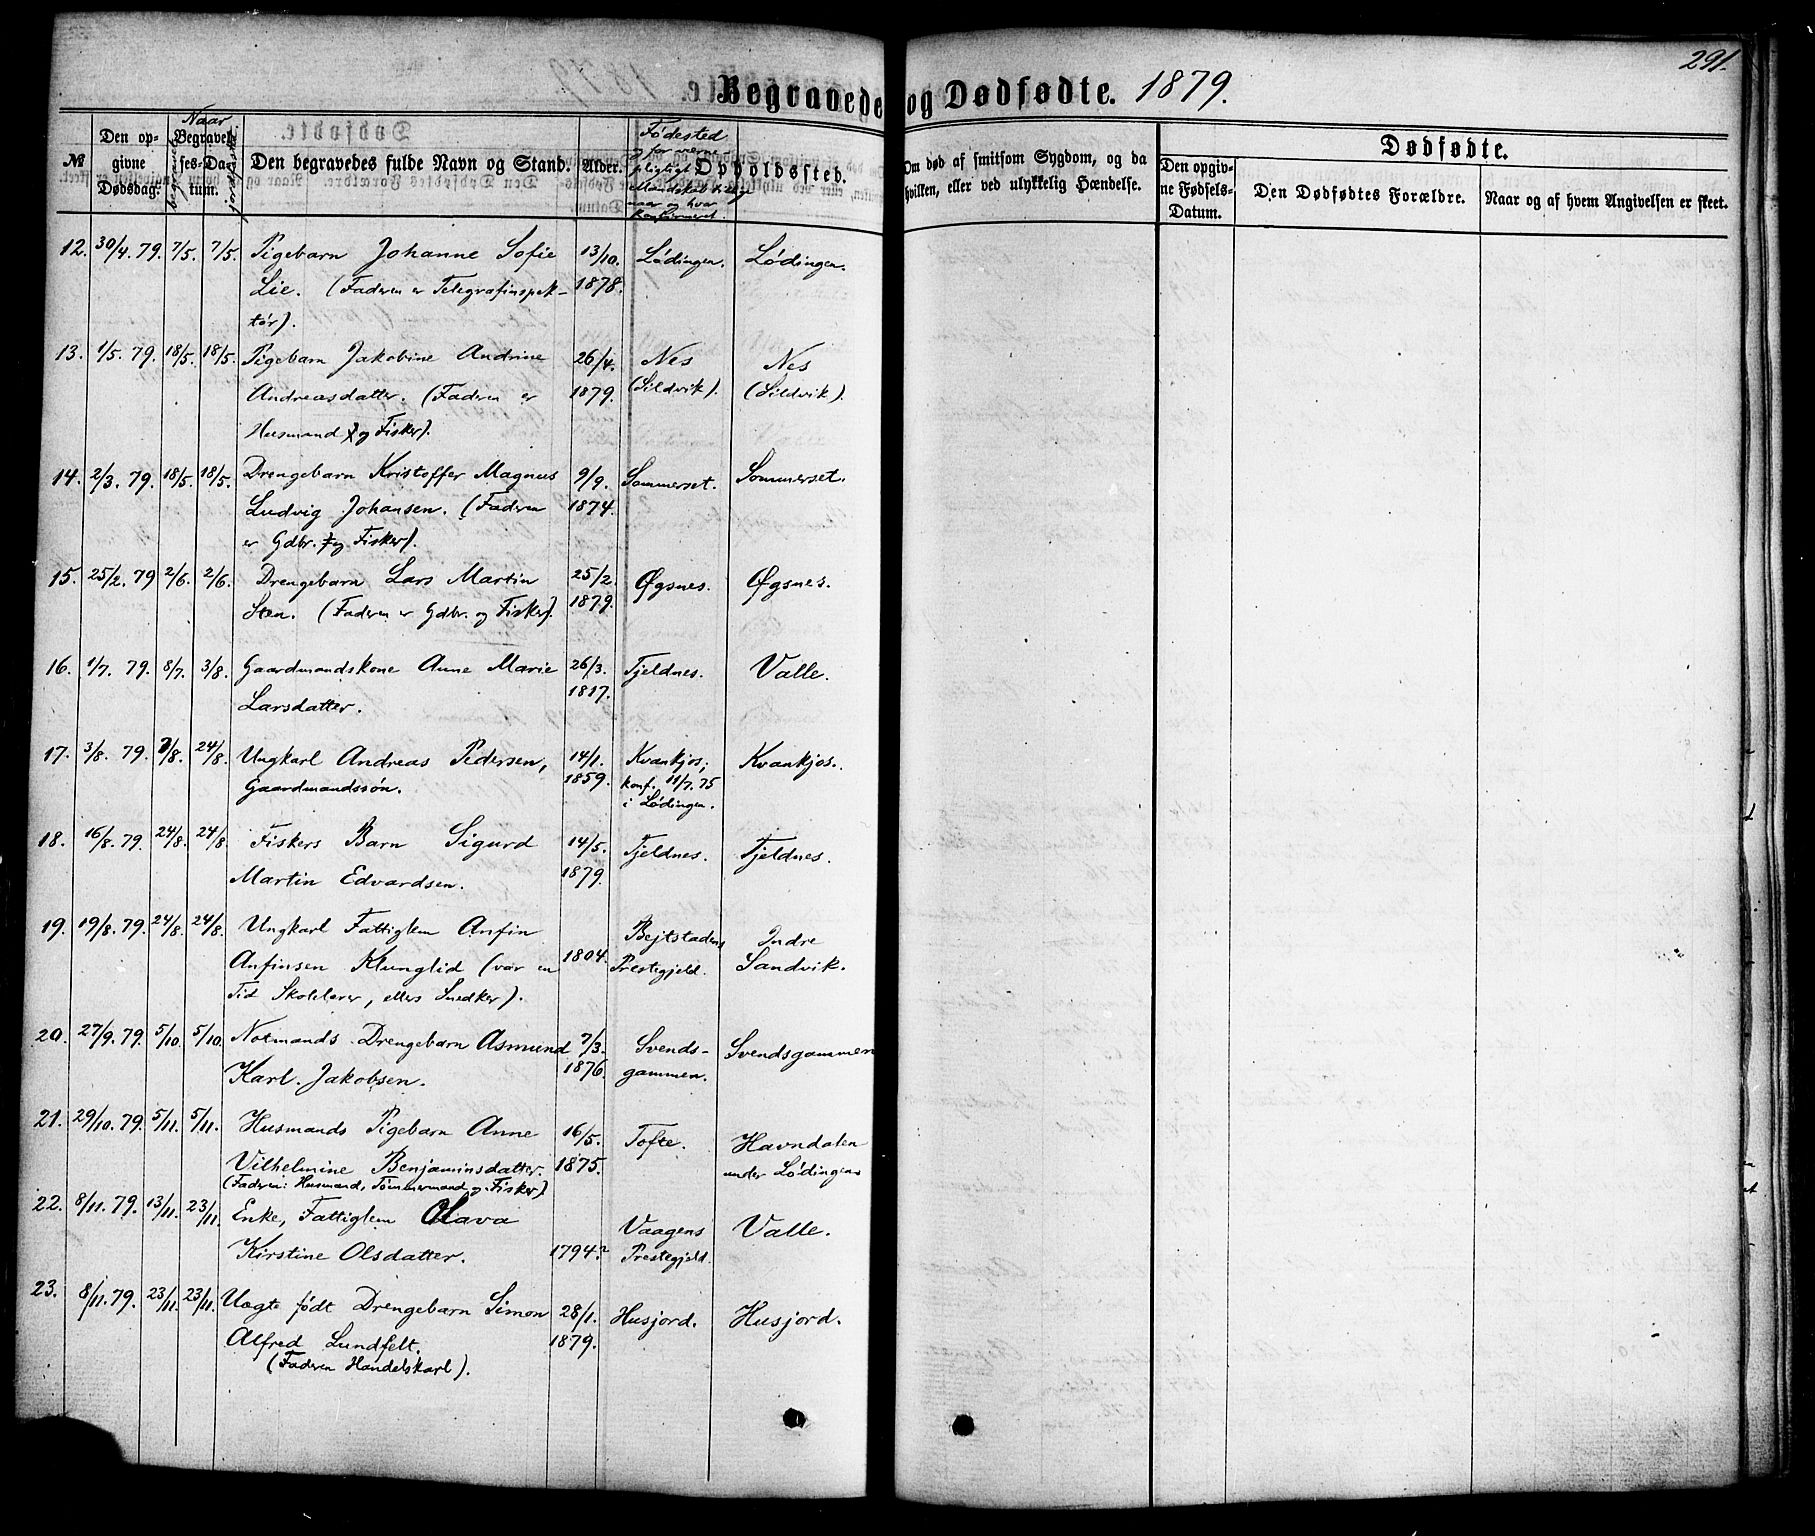 291.
Begravede og Dødfødte. 1879.
№
Den opgivne Dødsdag.
Naar
Begravelses-Datum.
begravet
jordfæstet
Den begravedes fulde Navn og Stand.
Alder.
Fødested og for værnepligtigt Mandskab tillige naar og hvor konfirmeret
Opholdssted.
Om død af smitsom Sygdom, og da hvilken, eller ved ulykkelig Hændelse.
Dødfødte.
Den opgivne Fødsels-Datum.
Den Dødfødtes Forældre.
Naar og af hvem Angivelsen er skeet.
12. 30/4. 79. 7/5. 7/5. Pigebarn Johanne Sofie 13/10. Lødingen. Lødingen.
Lie. (Faderen er Telegrafinspek- 1878.
tør).
13. 1/5. 79. 18/5. 18/5. Pigebarn Jakobine Andrine 26/4. Nes Nes
Andreasdatter. (Faderen er 1879. (Sildvik). (Sildvik).
Husmand og Fisker).
14. 2/3. 79. 18/5. 18/5. Drengebarn Kristoffer Magnus 9/9. Sommerset. Sommerset.
Ludvig Johansen. (Faderen 1874.
er Gdbr. og Fisker).
15. 25/2. 79 2/6. 2/6. Drengebarn Lars Martin 25/2. Øgsnes. Øgsnes.
Sten. (Faderen er Gdbr. og Fisker). 1879.
16. 1/7. 79. 8/7. 3/8. Gaardmandskone Anne Marie 26/3. Tjeldnes. Valle.
Larsdatter. 1817.
17. 3/8. 79. 7/8. 24/8. Ungkarl Andreas Pedersen, 14/1. Kvankjos; Kvankjos.
Gaardmandssøn. 1859. konf. 11/7. 75
i Lødingen.
18. 16/8. 79. 24/8. 24/8. Fiskers Barn Sigurd 14/5. Tjeldnes. Tjeldnes.
Martin Edvardsen. 1879.
19. 19/8. 79. 24/8. 24/8. Ungkarl Fattiglem Anfin Bejtstadens Indre
Anfinsen Klunglid (var en 1804. Prestegjeld. Sandvik.
Tid Skolelærer, ellers Snedker).
20. 27/9. 79. 5/10. 5/10. Notmands Drengebarn Asmund 7/3. Svends- Svendsgammen
Karl Jakobsen. 1876. gammen.
21. 29/10. 79. 5/11. 5/11. Husmands Pigebarn Anne 16/5. Tofte. Havndalen
Vilhelmine Benjaminsdatter. 1875. under Lødingen
(Faderen: Husmand, Tømmermand og Fisker)
22. 8/11. 79. 13/11. 23/11. Enke, Fattiglem Olava Vaagens Valle.
Kirstine Olsdatter. 1794? Prestegjeld.
23. 8/11. 79. 23/11. 23/11. Uegte født Drengebarn Simon 28/1. Husjord. Husjord.
Alfred Lundfelt. 1879.
(Faderen Handelskarl).